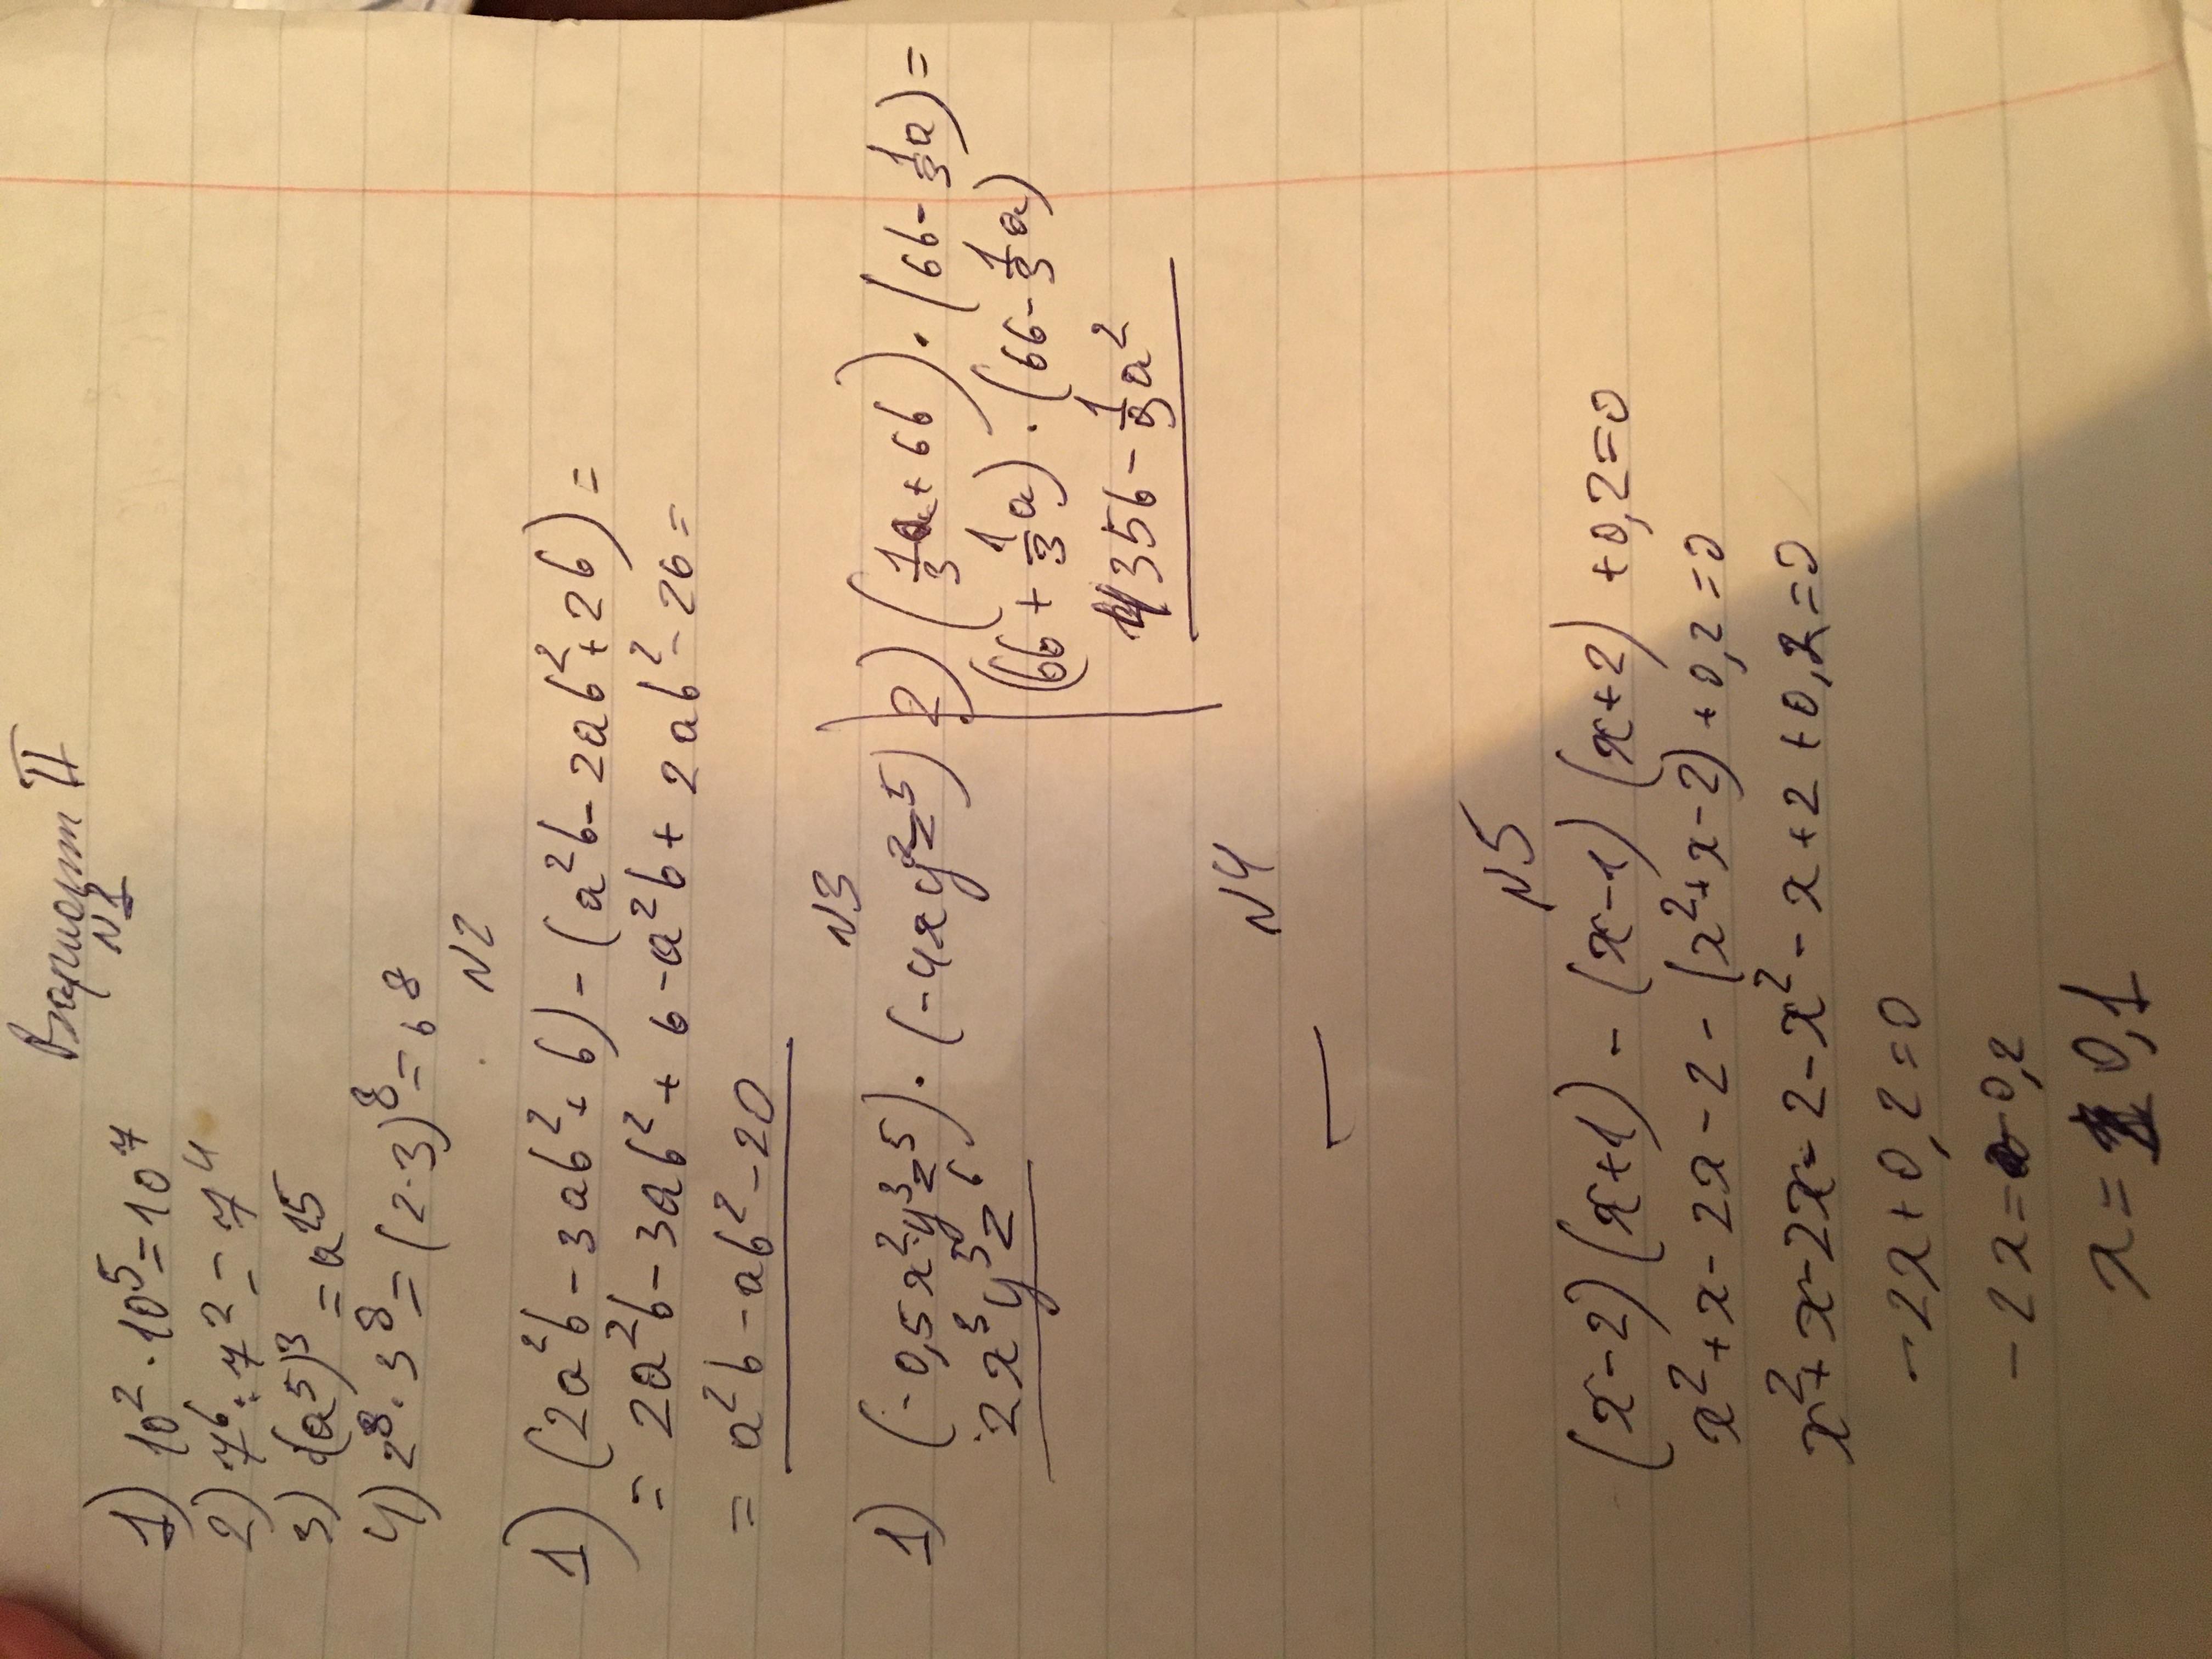 Вариант II
N1
1) 10² · 10⁵ = 10⁷
2) 7⁶ : 7² = 7⁴
3) (a⁵)³ = a¹⁵
4) 2⁸ · 3⁸ = (2·3)⁸ = 6⁸
N2
1) (2a²b - 3ab² + b) - (a²b - 2ab² + 2b) =
= 2a²b - 3ab² + b - a²b + 2ab² - 2b =
= a²b - ab² - 20
N3
1) (-0,5x²y³z⁵) · (-4xy²z⁵)
2x³y⁵z⁶
2) (1/3a + 6b) · (6b - 1/3a) =
(6b + 1/3a) · (6b - 1/3a)
356 - 1/9a²
N4
—
N5
(x-2)(x+1) - (x-1)(x+2) + 0,2 = 0
x² + x - 2x - 2 - (x² + x - 2) + 0,2 = 0
x² + x - 2x - 2 - x² - x + 2 + 0,2 = 0
-2x + 0,2 = 0
-2x = -0,2
x = 0,1